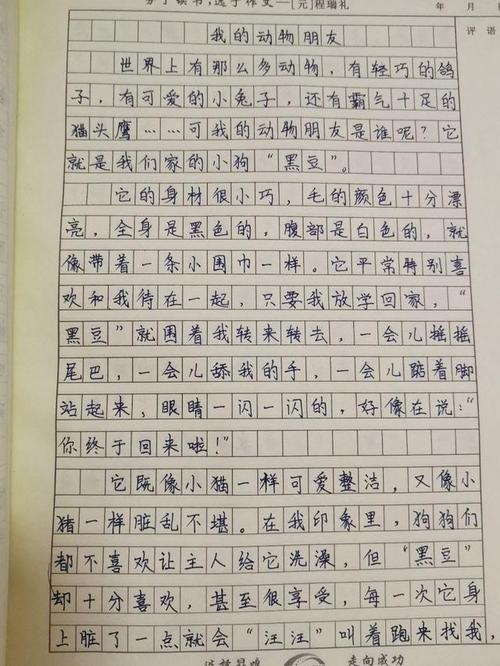 劳于读书,逸于作文—[元]程瑞礼
年 月 日
评语
我的动物朋友
世界上有那么多动物，有轻巧的鸽
子，有可爱的小兔子，还有霸气十足的
猫头鹰……可我的动物朋友是谁呢？它
就是我们家的小狗“黑豆”。
它的身材很小巧，毛的颜色十分漂
亮，全身是黑色的，腹部是白色的，就
像带着一条小围巾一样。它平常特别喜
欢和我待在一起，只要我放学回家，“
黑豆”就围着我转来转去，一会儿摇摇
尾巴，一会儿舔我的手，一会儿踮着脚
站起来，眼睛一闪一闪的，好像在说：“
你终于回来啦！”
它既像小猫一样可爱整洁，又像小
猪一样脏乱不堪。在我印象里，狗狗们
都不喜欢让主人给它洗澡，但“黑豆”
却十分喜欢，甚至很享受，每一次它身
上脏了一点就会“汪汪”叫着跑来找我，
走向成功